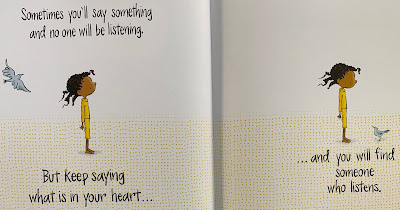 Sometimes you'll say something
and no one will be listening.
But keep saying
what is in your heart...
...and you will find
someone
who listens.